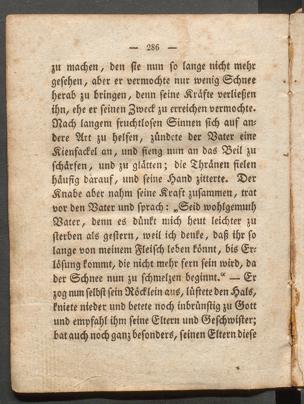 — 286 —
zu machen, den sie nun so lange nicht mehr
gesehen, aber er vermochte nur wenig Schnee
herab zu bringen, denn seine Kräfte verließen
ihn, ehe er seinen Zweck zu erreichen vermochte.
Nach langem fruchtlosen Sinnen sich auf an-
dere Art zu helfen, zündete der Vater eine
Kienfackel an, und fieng nun an das Beil zu
schärfen, und zu glätten; die Thränen fielen
häufig darauf, und seine Hand zitterte. Der
Knabe aber nahm seine Kraft zusammen, trat
vor den Vater und sprach: „Seid wohlgemuth
Vater, denn es dünkt mich heut leichter zu
sterben als gestern, weil ich denke, daß ihr so
lange von meinem Fleisch leben könnt, bis Er-
lösung kommt, die nicht mehr fern sein wird, da
der Schnee nun zu schmelzen beginnt.“ — Er
zog nun selbst sein Röcklein aus, lüftete den Hals,
kniete nieder und betete noch inbrünstig zu Gott
und empfahl ihm seine Eltern und Geschwister;
bat auch noch ganz besonders, seinen Eltern diese